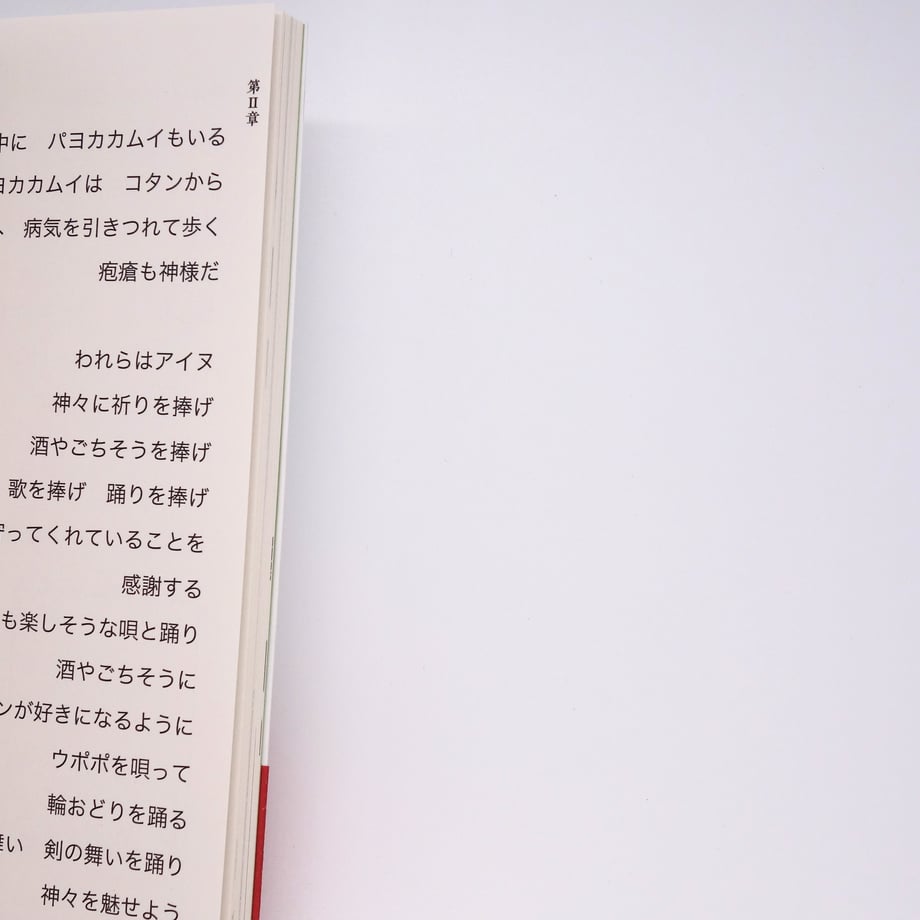 第Ⅱ章
中に　パヨカカムイもいる
ヨカカムイは　コタンから
、　病気を引きつれて歩く
疱瘡も神様だ
われらはアイヌ
神々に祈りを捧げ
酒やごちそうを捧げ
歌を捧げ　踊りを捧げ
守ってくれていることを
感謝する
も楽しそうな唄と踊り
酒やごちそうに
ンが好きになるように
ウポポを唄って
輪おどりを踊る
舞い　剣の舞いを踊り
神々を魅せよう